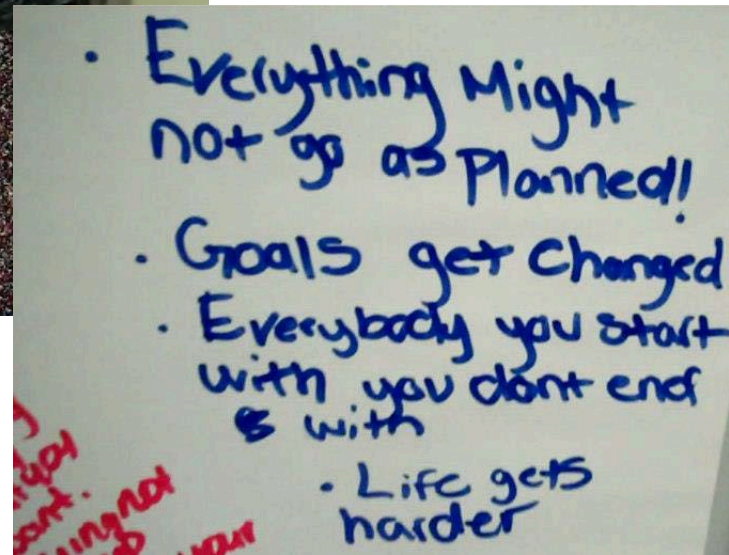 · Everything Might
not go as Planned!
· Goals get Changed
· Everybody you start
with you dont end
with
· Life gets
harder
your